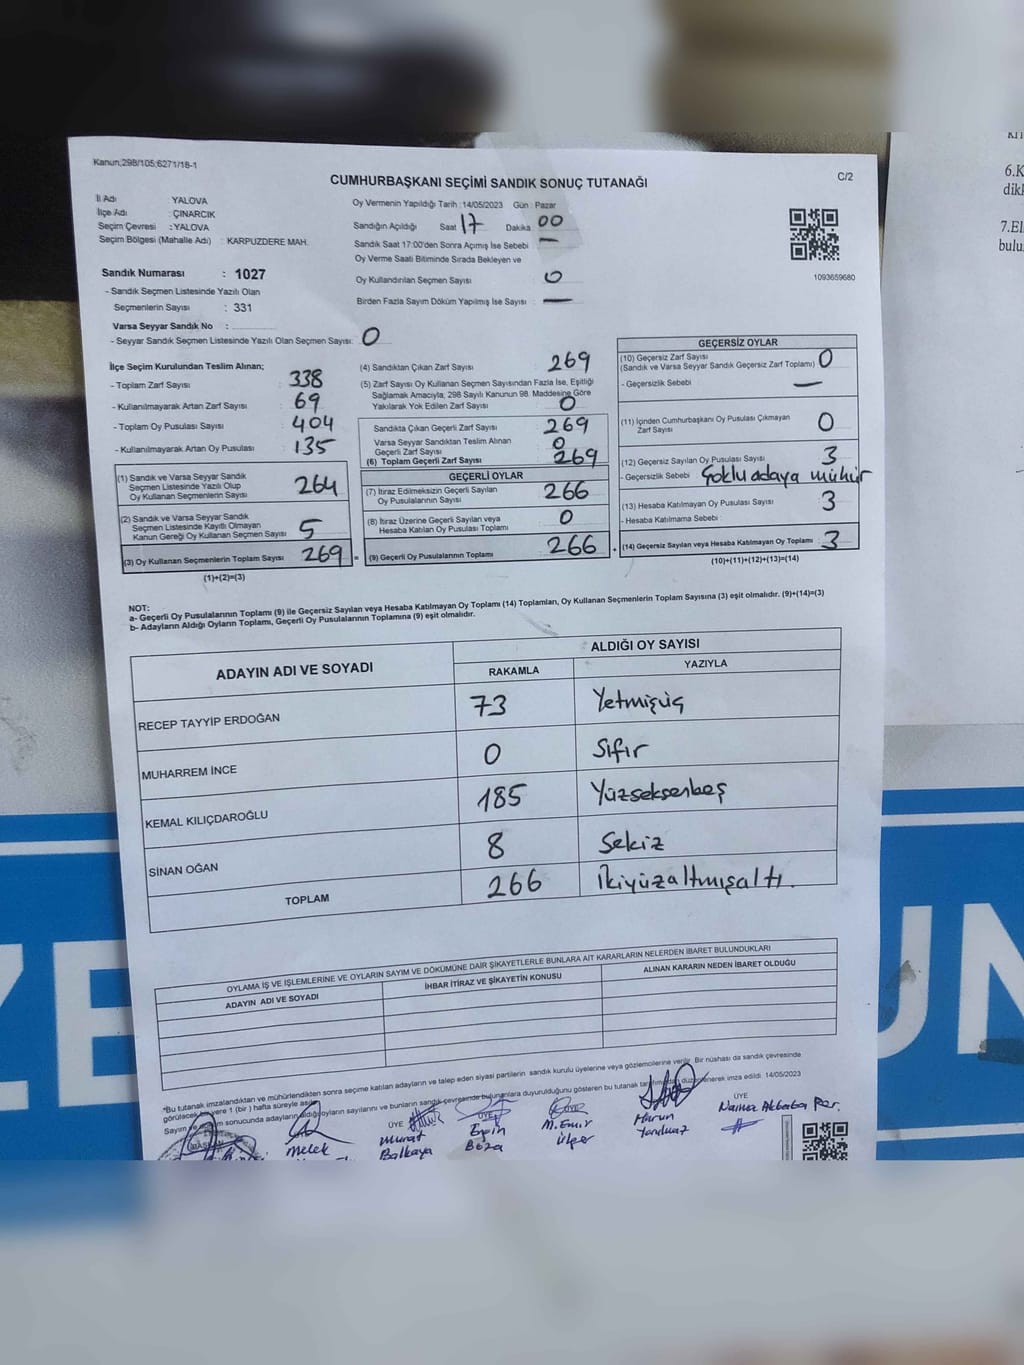 Kanun;298/105;6271/18-1
CUMHURBAŞKANI SEÇİMİ SANDIK SONUÇ TUTANAĞI
C/2
İl Adı : YALOVA
İlçe Adı : ÇINARCIK
Seçim Çevresi : YALOVA
Seçim Bölgesi (Mahalle Adı) : KARPUZDERE MAH.
Sandık Numarası : 1027
- Sandık Seçmen Listesinde Yazılı Olan
Seçmenlerin Sayısı : 331
Varsa Seyyar Sandık No :
- Seyyar Sandık Seçmen Listesinde Yazılı Olan Seçmen Sayısı: 0
Oy Vermenin Yapıldığı Tarih : 14/05/2023 Gün : Pazar
Sandığın Açıldığı Saat 17 Dakika 00
Sandık Saat 17:00'den Sonra Açımış İse Sebebi —
Oy Verme Saati Bitiminde Sırada Bekleyen ve
Oy Kullandırılan Seçmen Sayısı 0
Birden Fazla Sayım Döküm Yapılmış İse Sayısı : —
1093659680
İlçe Seçim Kurulundan Teslim Alınan;
- Toplam Zarf Sayısı : 338
- Kullanılmayarak Artan Zarf Sayısı : 69
- Toplam Oy Pusulası Sayısı : 404
- Kullanılmayarak Artan Oy Pusulası : 135
(1) Sandık ve Varsa Seyyar Sandık
Seçmen Listesinde Yazılı Olup
Oy Kullanan Seçmenlerin Sayısı 264
(2) Sandık ve Varsa Seyyar Sandık
Seçmen Listesinde Kayıtlı Olmayan
Kanun Gereği Oy Kullanan Seçmen Sayısı 5
(3) Oy Kullanan Seçmenlerin Toplam Sayısı 269
(1)+(2)=(3)
(4) Sandıktan Çıkan Zarf Sayısı 269
(5) Zarf Sayısı Oy Kullanan Seçmen Sayısından Fazla İse, Eşitliği
Sağlamak Amacıyla, 298 Sayılı Kanunun 98. Maddesine Göre
Yakılarak Yok Edilen Zarf Sayısı 0
Sandıkta Çıkan Geçerli Zarf Sayısı 269
Varsa Seyyar Sandıktan Teslim Alınan
Geçerli Zarf Sayısı 0
(6) Toplam Geçerli Zarf Sayısı 269
GEÇERLİ OYLAR
(7) İtiraz Edilmeksizin Geçerli Sayılan
Oy Pusulalarının Sayısı 266
(8) İtiraz Üzerine Geçerli Sayılan veya
Hesaba Katılan Oy Pusulası Toplamı 0
(9) Geçerli Oy Pusulalarının Toplamı 266
GEÇERSİZ OYLAR
(10) Geçersiz Zarf Sayısı
(Sandık ve Varsa Seyyar Sandık Geçersiz Zarf Toplamı) 0
- Geçersizlik Sebebi —
(11) İçinden Cumhurbaşkanı Oy Pusulası Çıkmayan
Zarf Sayısı 0
(12) Geçersiz Sayılan Oy Pusulası Sayısı 3
- Geçersizlik Sebebi Çoklu adaya mühür
(13) Hesaba Katılmayan Oy Pusulası Sayısı 3
- Hesaba Katılmama Sebebi
(14) Geçersiz Sayılan veya Hesaba Katılmayan Oy Toplamı 3
(10)+(11)+(12)+(13)=(14)
NOT:
a- Geçerli Oy Pusulalarının Toplamı (9) ile Geçersiz Sayılan veya Hesaba Katılmayan Oy Toplamı (14) Toplamları, Oy Kullanan Seçmenlerin Toplam Sayısına (3) eşit olmalıdır. (9)+(14)=(3)
b- Adayların Aldığı Oyların Toplamı, Geçerli Oy Pusulalarının Toplamına (9) eşit olmalıdır.
ADAYIN ADI VE SOYADI
ALDIĞI OY SAYISI
RAKAMLA YAZIYLA
RECEP TAYYİP ERDOĞAN 73 Yetmişüç
MUHARREM İNCE 0 Sıfır
KEMAL KILIÇDAROĞLU 185 Yüzseksenbeş
SİNAN OĞAN 8 Sekiz
TOPLAM 266 İkiyüzaltmışaltı.
OYLAMA İŞ VE İŞLEMLERİNE VE OYLARIN SAYIM VE DÖKÜMÜNE DAİR ŞİKAYETLERLE BUNLARA AİT KARARLARIN NELERDEN İBARET BULUNDUKLARI
ADAYIN ADI VE SOYADI İHBAR İTİRAZ VE ŞİKAYETİN KONUSU ALINAN KARARIN NEDEN İBARET OLDUĞU
*Bu tutanak imzalandıktan ve mühürlendikten sonra seçime katılan adayların ve talep eden siyasi partilerin sandık kurulu üyelerine veya gözlemcilerine verilir. Bir nüshası da sandık çevresinde
görülecek bir yere 1 (bir) hafta süreyle asılır.
Sayım sonucunda adayların aldığı oyların sayılarını ve bunların sandık çevresinde bulunanlara duyurulduğunu gösteren bu tutanak düzenlenerek imza edildi. 14/05/2023
ÜYE ÜYE ÜYE ÜYE
Melek
Murat
Balkaya
Engin
Boza
M. Emir
Ülger
Harun
Yandımaz
Naima Akbaba
KİT
6.K
dikk
7.El
bulu
ZE
UN